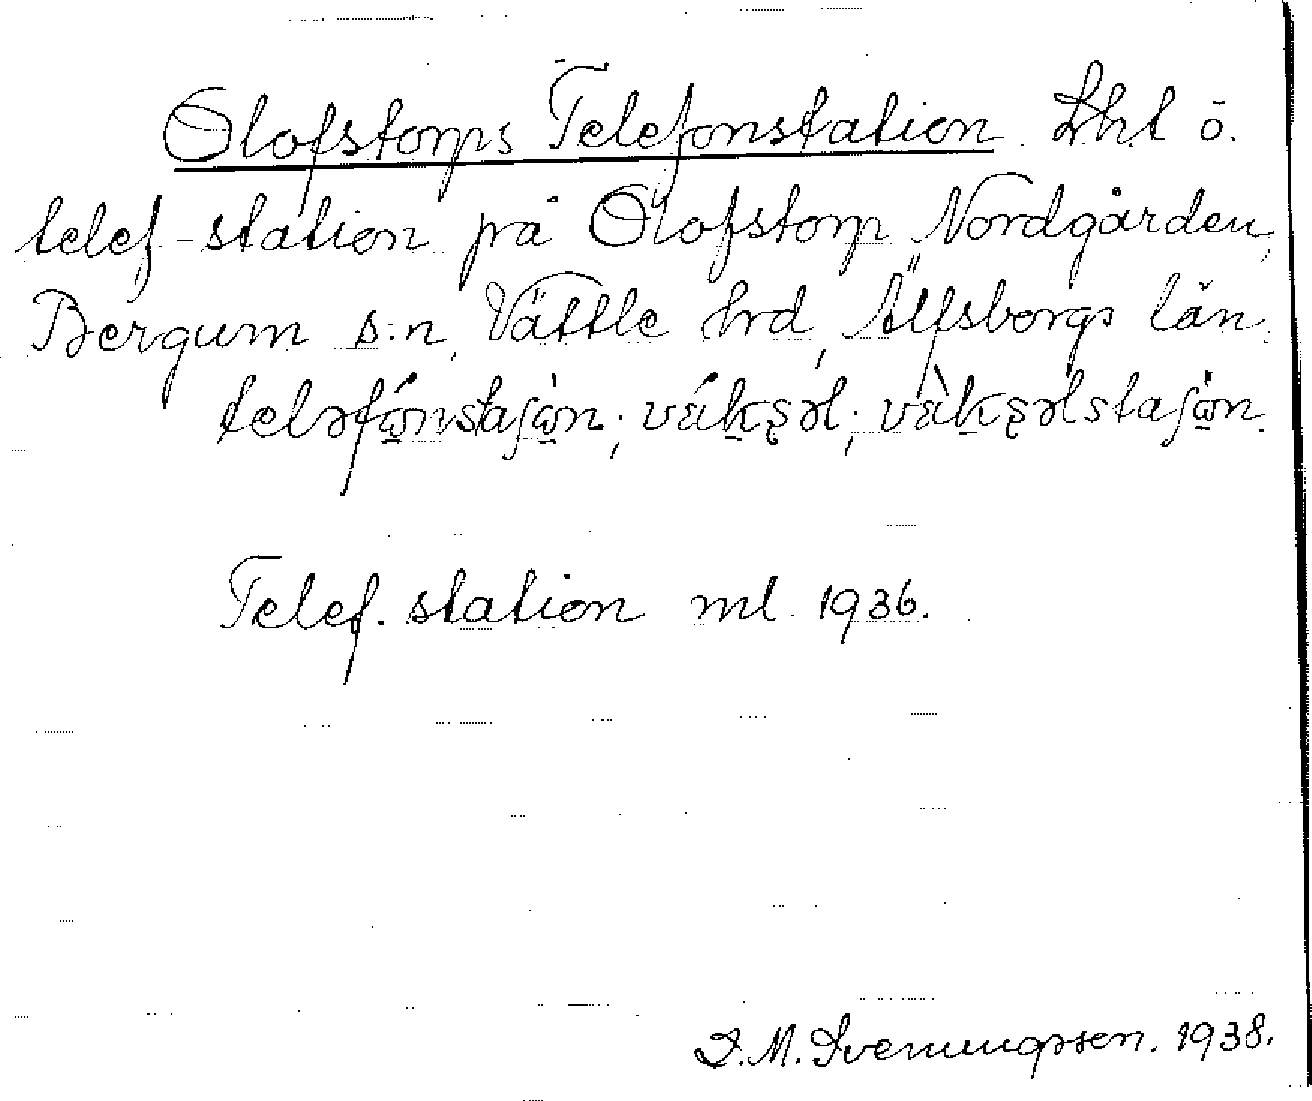 Olofstorps Telefonstation. Lht ö.
telef-station på Olofstorp Nordgården,
Bergum s:n, Vättle hrd, Älfsborgs län.
teləfώnstaʃὼn; vákşəl; vàkşəlstaʃὼn.
Telef. station ml 1936.
D.M. Svenungsson. 1938.